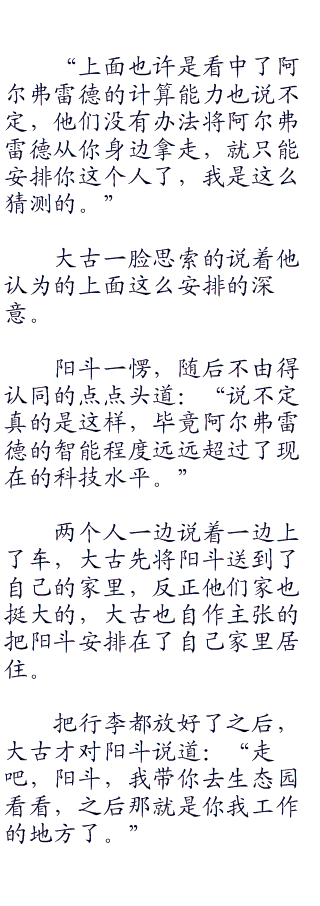 “上面也许是看中了阿
尔弗雷德的计算能力也说不
定，他们没有办法将阿尔弗
雷德从你身边拿走，就只能
安排你这个人了，我是这么
猜测的。”
大古一脸思索的说着他
认为的上面这么安排的深
意。
阳斗一愣，随后不由得
认同的点点头道：“说不定
真的是这样，毕竟阿尔弗雷
德的智能程度远远超过了现
在的科技水平。”
两个人一边说着一边上
了车，大古先将阳斗送到了
自己的家里，反正他们家也
挺大的，大古也自作主张的
把阳斗安排在了自己家里居
住。
把行李都放好了之后，
大古才对阳斗说道：“走
吧，阳斗，我带你去生态园
看看，之后那就是你我工作
的地方了。”